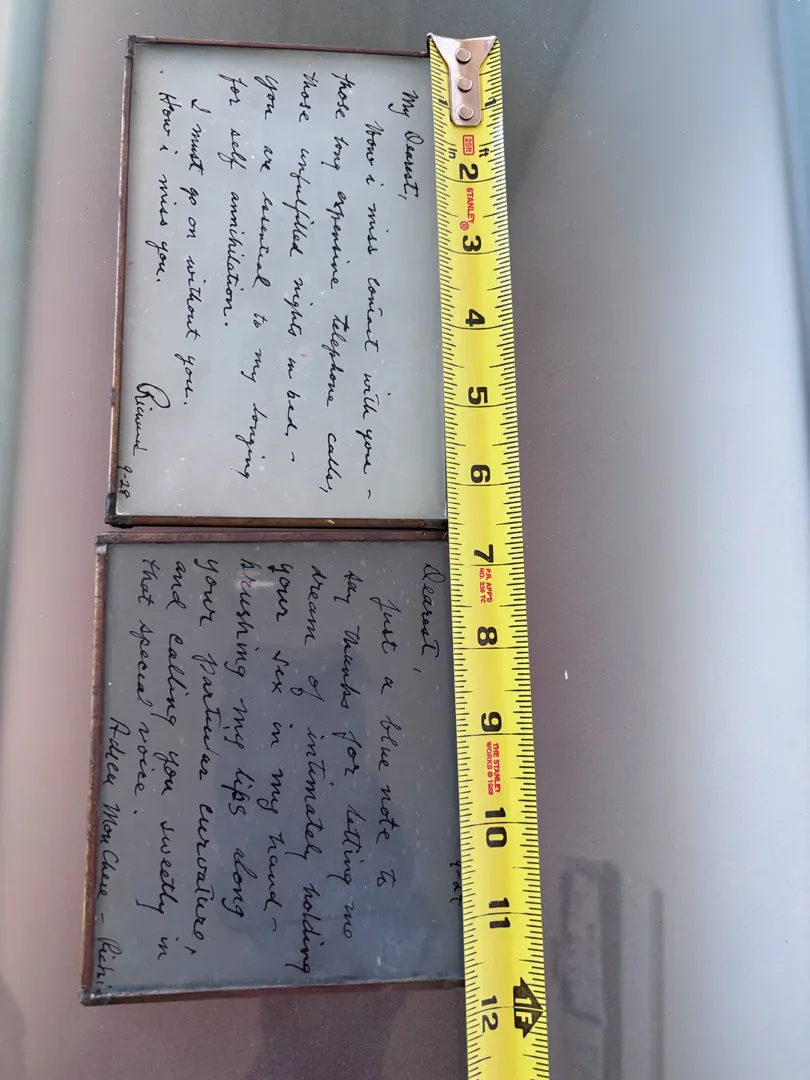 My Dearest,
How i miss contact with you -
those long expensive telephone calls,
those unfulfilled nights in bed. -
you are essential to my longing
for self annihilation.
I must go on without you.
. How i miss you.
Richard 9-28
9-29
Dearest,
Just a blue note to
say thanks for letting me
dream of intimately holding
your sex in my hand -
brushing my lips along
your particular curvature,
and calling you sweetly in
that special voice.
Adieu Mon Chere - Richi
1 1
25ft
in ft
2
STANLEY ®
3
4
5
6
7
P.R. APP'D
NO. 339 TC
8
9
THE STANLEY
WORKS © 1989
10
11
1F
12